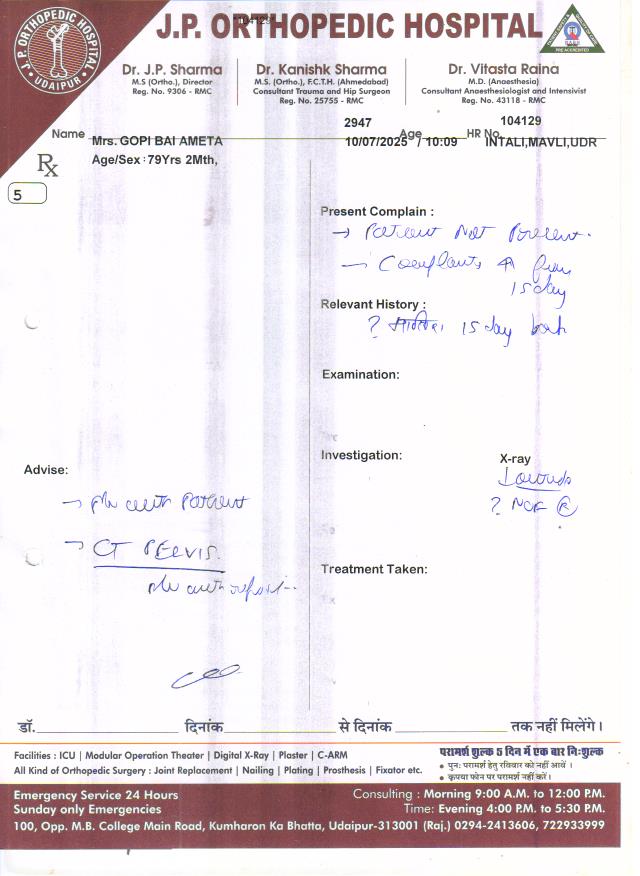 J.P. ORTHOPEDIC HOSPITAL
"104129"
J.P. ORTHOPEDIC HOSPITAL
UDAIPUR
PRE ACCREDITED
Dr. J.P. Sharma
M.S (Ortho.), Director
Reg. No. 9306 - RMC
Dr. Kanishk Sharma
M.S. (Ortho.), F.C.T.H. (Ahmedabad)
Consultant Trauma and Hip Surgeon
Reg. No. 25755 - RMC
Dr. Vitasta Raina
M.D. (Anaesthesia)
Consultant Anaesthesiologist and Intensivist
Reg. No. 43118 - RMC
2947 104129
Name Mrs. GOPI BAI AMETA Age HR No.
10/07/2025 / 10:09 INTALI,MAVLI,UDR
Rx Age/Sex : 79Yrs 2Mth,
5
Present Complain :
→ Patient Not Present.
→ Complaints from
15 day
Relevant History :
? 15 day back
Examination:
Investigation: X-ray
? NOF R
Advise:
→ with Patient
→ CT PELVIS.
with report
Treatment Taken:
डॉ. दिनांक से दिनांक तक नहीं मिलेंगे।
Facilities : ICU | Modular Operation Theater | Digital X-Ray | Plaster | C-ARM
All Kind of Orthopedic Surgery : Joint Replacement | Nailing | Plating | Prosthesis | Fixator etc.
परामर्श शुल्क 5 दिन में एक बार निःशुल्क
• पुनः परामर्श हेतु रविवार को नहीं आवें ।
• कृपया फोन पर परामर्श नहीं करें।
Emergency Service 24 Hours
Sunday only Emergencies
Consulting : Morning 9:00 A.M. to 12:00 P.M.
Time: Evening 4:00 P.M. to 5:30 P.M.
100, Opp. M.B. College Main Road, Kumharon Ka Bhatta, Udaipur-313001 (Raj.) 0294-2413606, 722933999